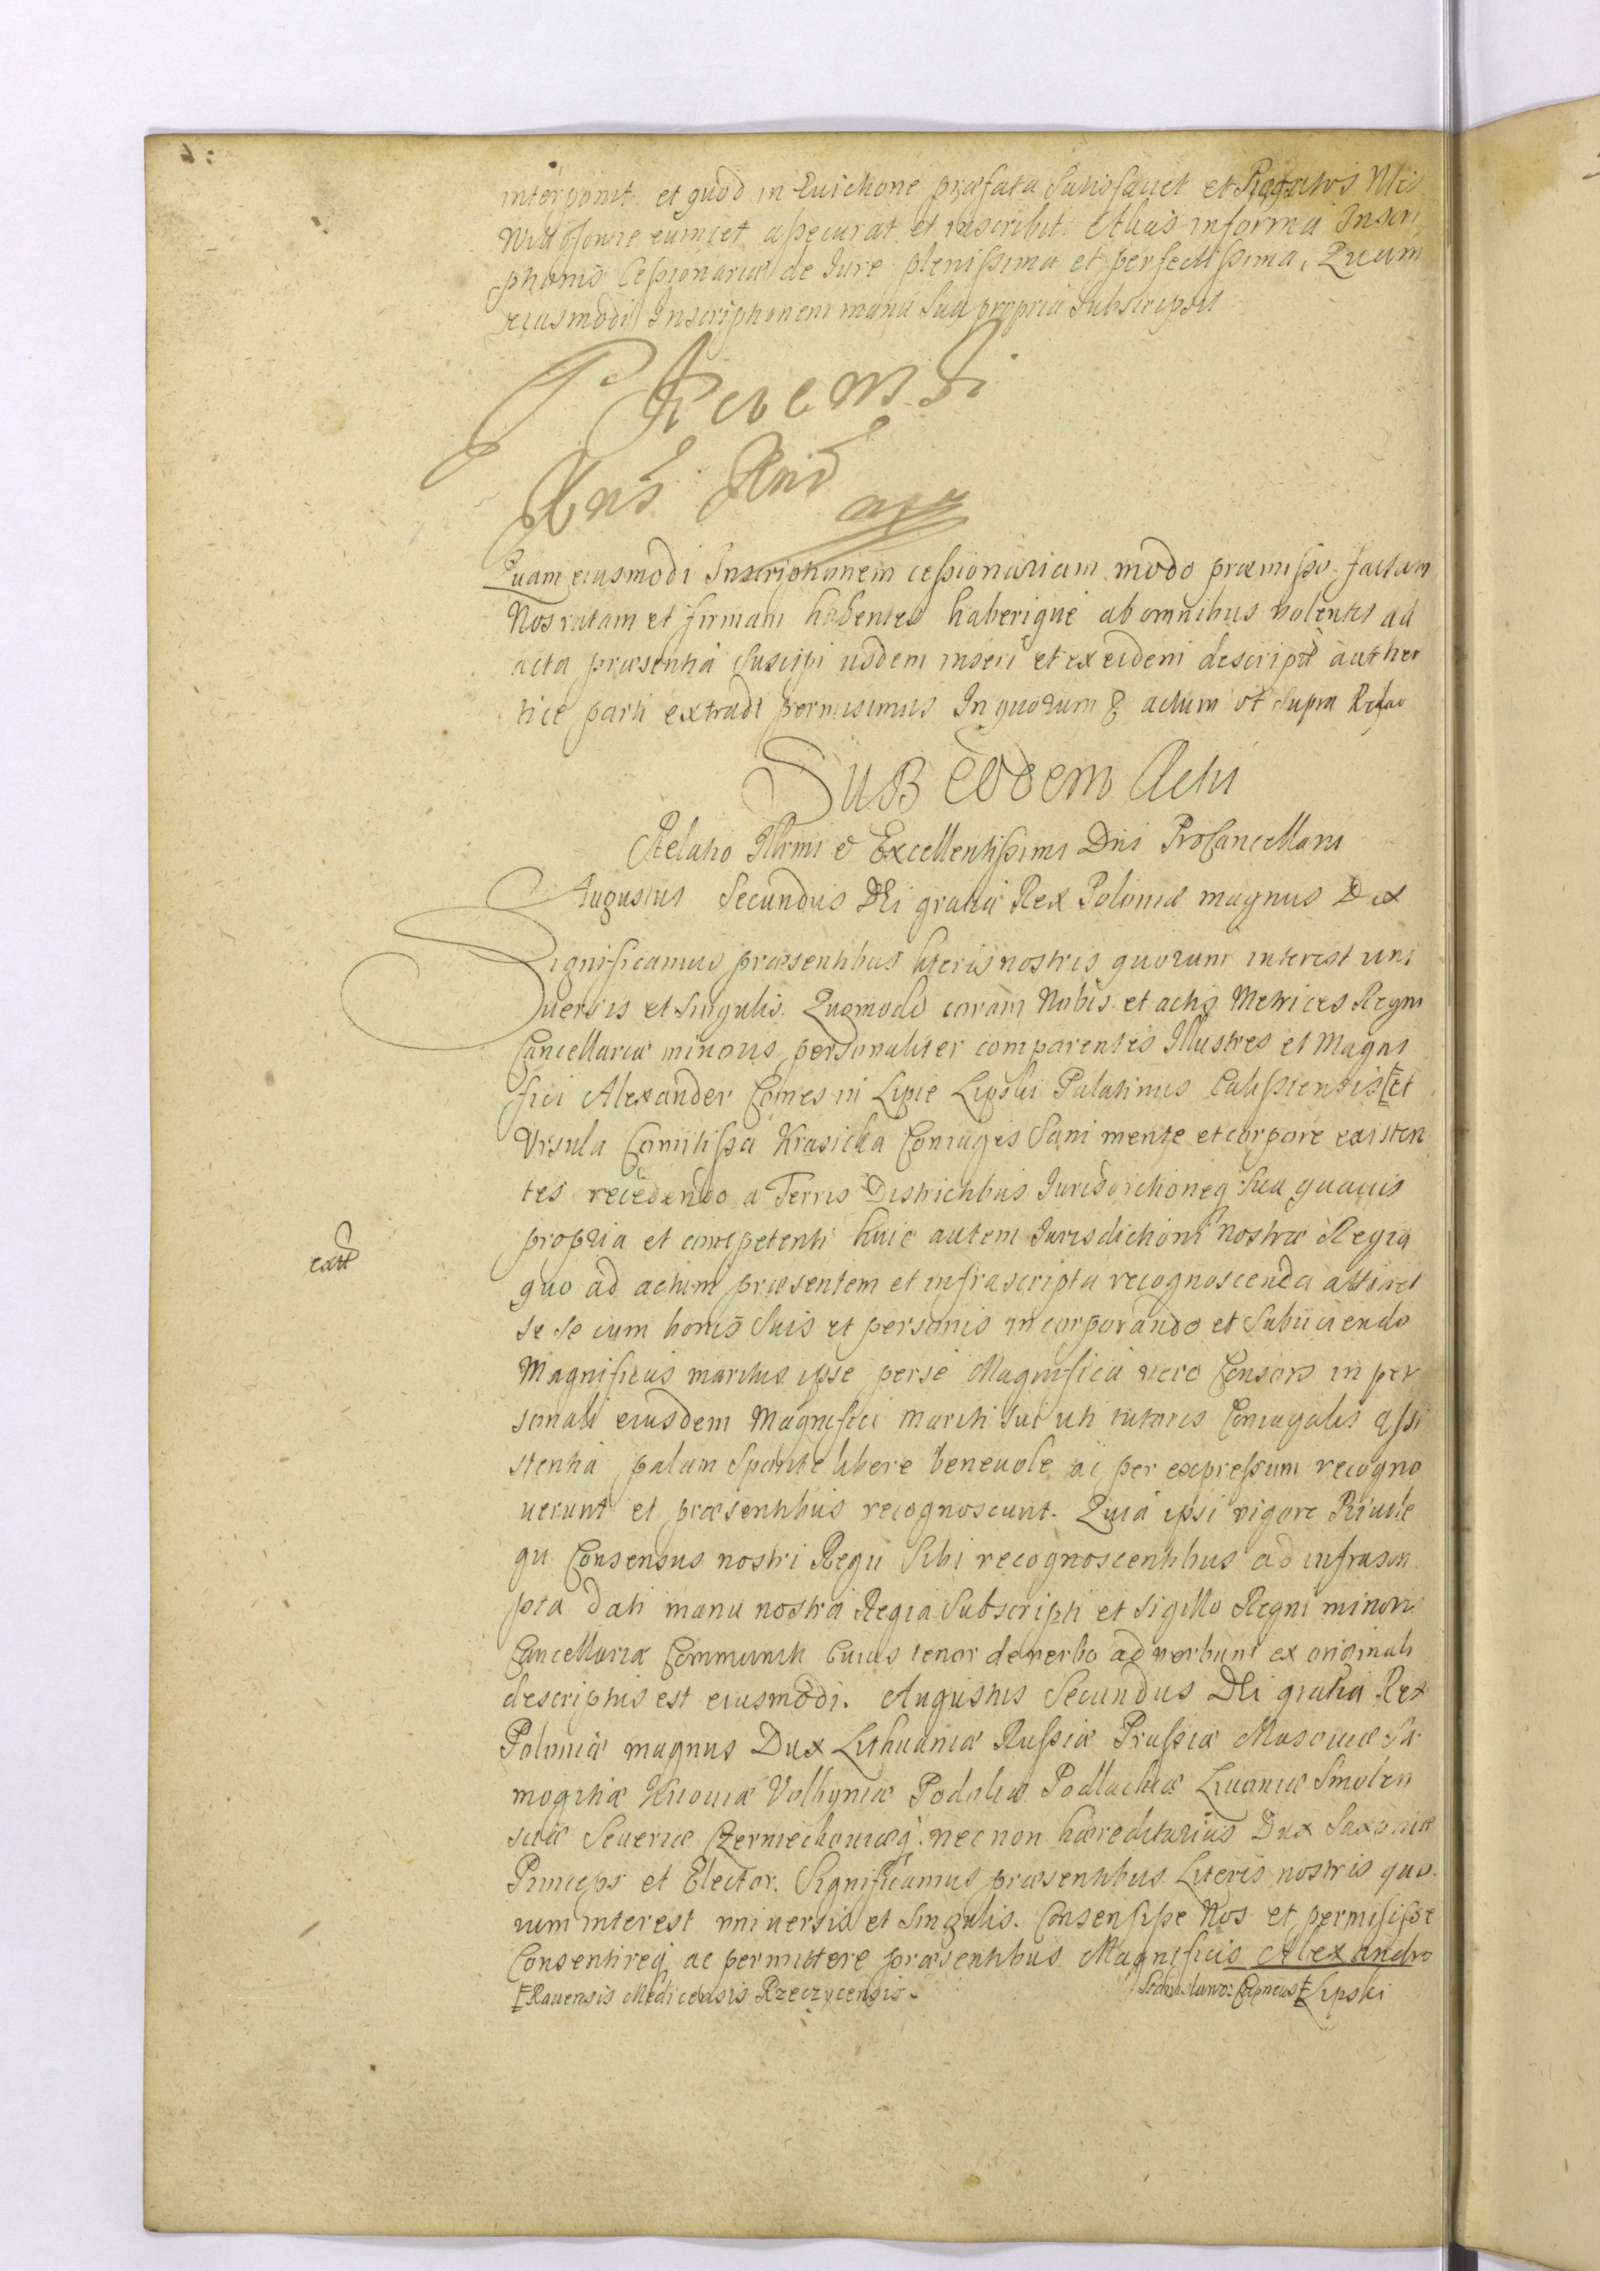 interponit et quod in Euictione præfata Satisfaciet et
eumcet assecurat et inscribit. Alias in forma Inscri
ptionis Cessionariæ de Iure plenissima et perfectissima, Quam
eiusmodi Inscriptionem manu Sua propria Subscripsit
Quam eiusmodi Inscriptionem cessionariam modo præmisso factam
Nos ratam et firmam habentes haberique ab omnibus volentes ad
acta præsentia Suscipi iisdem inseri et ex eidem descripta authen
tice parti extradi permisimus In quorum & actum vt supra
Sub eodem Actu
Relatio Illrmi & Excellentissimi Dni ProCancellarii
Augustus Secundus DEi gratia Rex Poloniæ magnus Dux
Significamus præsentibus literis nostris quorum interest uni
uersis et Singulis. Quomodo coram Nobis et actis Metrices Regni
Cancellariæ minoris personaliter comparentes Illustres et Magni
fici Alexander Comes in Lipie Lipski Palatinus Calissiensis et
Vrsula Comitissa Krasicka Coniuges Sani mente et corpore existen
tes recedendo a Terris Districtibus Iurisdictioneq Sua quauis
propria et competenti huic autem Iurisdictioni nostræ Regiæ
quo ad actum præsentem et infrascripta recognoscenda attinet
se se cum bonis Suis et personis incorporando et Subiiciendo
Magnificus maritus ipse perse Magnifica vero Consors in per
sonali eiusdem Magnifici mariti sui uti tutoris Coniugalis assi
stentia palam Sponte libere beneuole ac per expressum recogno
uerunt et præsentibus recognoscunt. Quia ipsi vigore Priuile
gii Consensus nostri Regii Sibi recognoscentibus ad infrascri
pta dati manu nostra Regia Subscripti et sigillo Regni minoris
Cancellariæ Communiti cuius tenor de verbo ad verbum ex originali
descriptus est eiusmodi. Augustus Secundus DEi gratia Rex
Poloniæ magnus Dux Lithuaniæ Russiæ Prussiæ Masouiæ Sa
mogitiæ Kiiouiæ Volhyniæ Podoliæ Podlachiæ Liuoniæ Smolen
sciæ Seueriæ Czerniechouiæq. nec non hæreditarius Dux Saxoniæ
Princeps et Elector. Significamus præsentibus Literis nostris quo
rum interest vniuersis et Singulis. Consensisse Nos et permisisse
Consentireq ac permittere præsentibus Magnificis Alexandro
Rauensis Medicensis Rzeczycensis.
Lipski